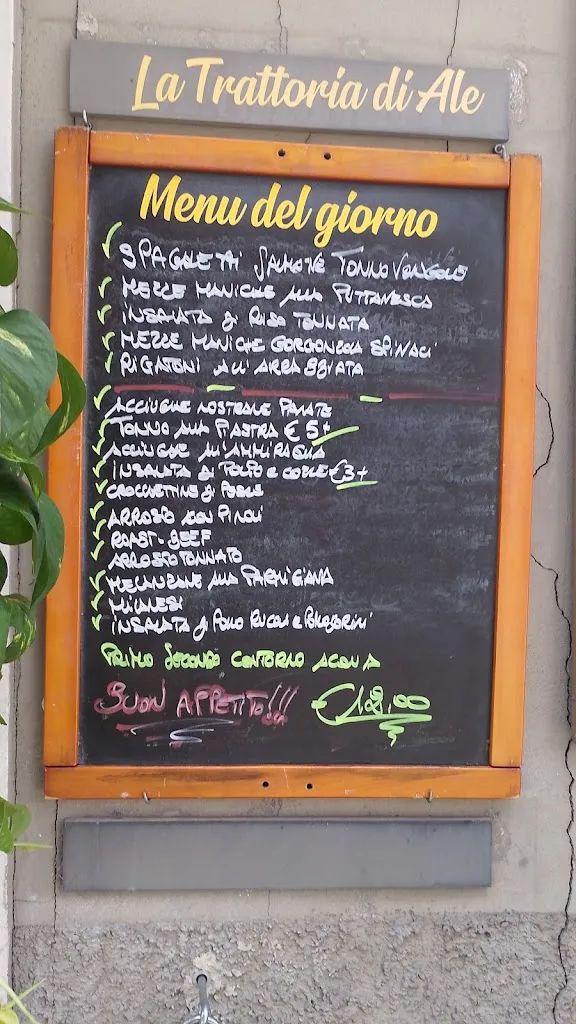 La Trattoria di Ale
Menu del giorno
SPAGHETTI SALMONE TONNO VONGOLE
MEZZE MANICHE ALLA PUTTANESCA
INSALATA di RISO TONNATA
MEZZE MANICHE GORGONZOLA SPINACI
RIGATONI ALL'ARRABBIATA
ACCIUGHE NOSTRALE PANATE
TONNO ALLA PIASTRA € 5+
ACCIUGHE ALL'AMMIRAGLIA
INSALATA di POLPO e COZZE €3+
CROCCHETTINE di PESCE
ARROSTO CON PINOLI
ROAST-BEEF
ARROSTO TONNATO
MELANZANE ALLA PARMIGIANA
MILANESI
INSALATA di POLLO RUCOLA e POMODORINI
PRIMO SECONDO CONTORNO ACQUA
BUON APPETITO!!!